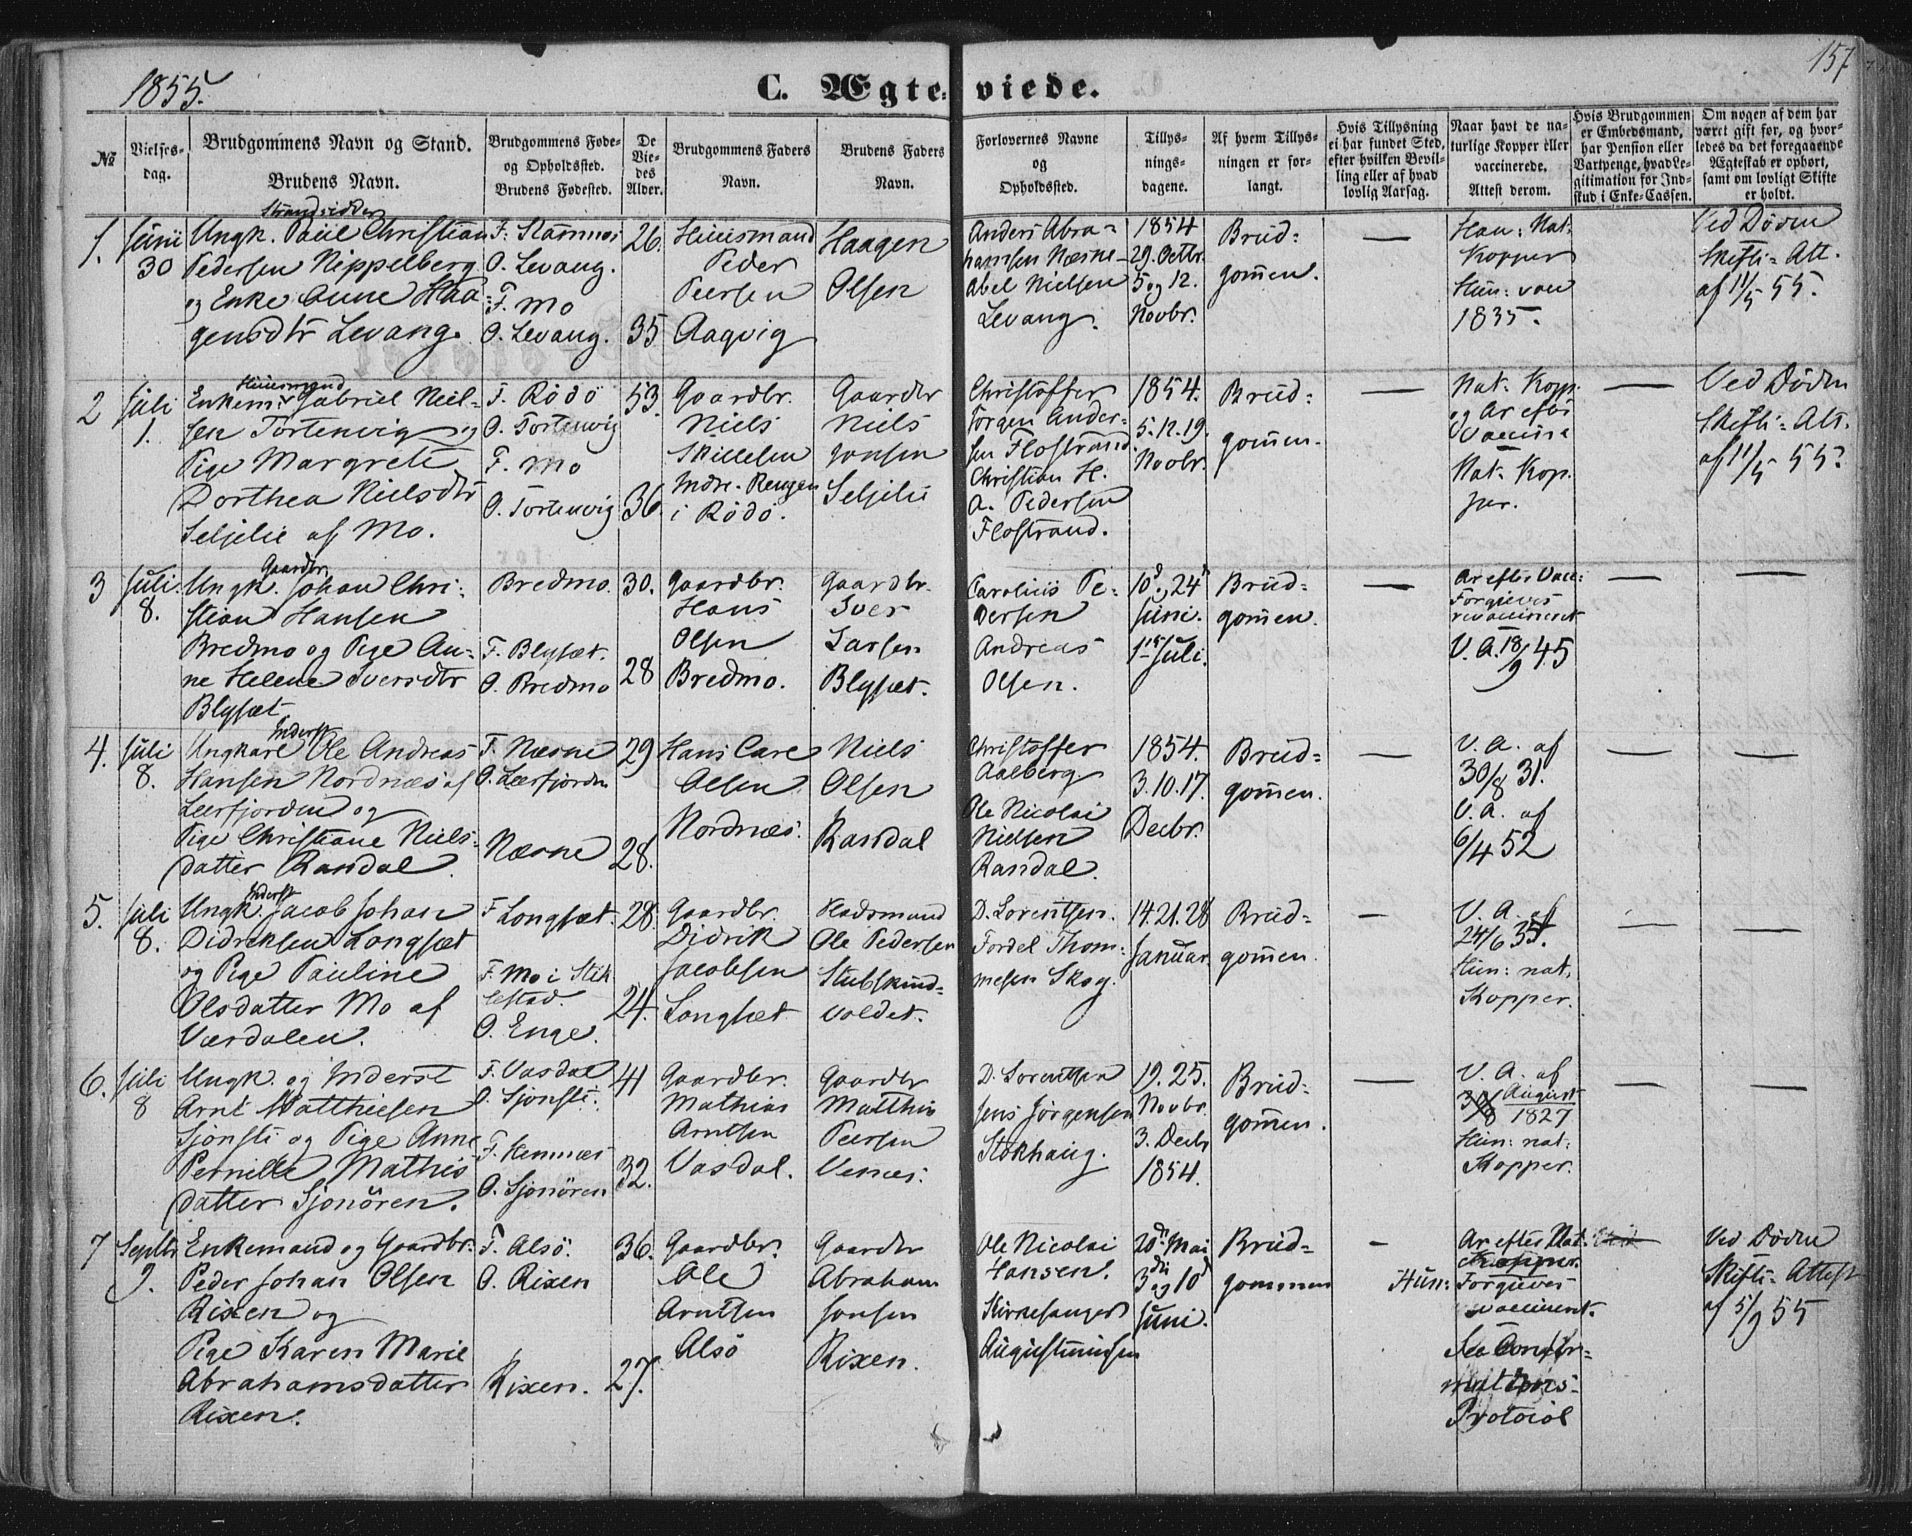 1855.
C. Ægteviede.
157
№
Vielses-
dag.
Brudgommens Navn og Stand.
Brudens Navn.
Brudgommens Føde-
og Opholdssted.
Brudens Fødested.
De
Vie-
des
Alder.
Brudgommens Faders
Navn.
Brudens Faders
Navn.
Forlovernes Navne
og
Opholdssted.
Tillys-
nings-
dagene.
Af hvem Tillys-
ningen er for-
langt.
Hvis Tillysning
ei har fundet Sted,
efter hvilken Bevil-
ling eller af hvad
lovlig Aarsag.
Naar havt de na-
turlige Kopper eller
vaccinerede.
Attest derom.
Hvis Brudgommen
er Embedsmand,
har Pension eller
Vartpenge, hvad Le-
gitimation for Ind-
skud i Enke-Cassen.
Om nogen af dem har
været gift før, og hvor-
ledes da det foregaaende
Ægteskab er ophørt,
samt om lovligt Skifte
er holdt.
1.
Juni
30
Strandsidder
Ungk. Paul Christian
Pedersen Nippelberg
og Enke Anne Haa-
gensdtr Levang
F. Stamnes
O. Levang.
F. Mo
O. Levang.
26.
35
Huusmand
Peder
Peersen
Aagvig
Haagen
Olsen
Anders Abra-
hamsen Næsne
Abel Nielsen
Levang.
1854
29. Octbr.
5 og 12.
Novbr.
Brud-
gommen.
—
Han: Nat.
Kopper
Hun: vac
1835.
Ved Døden
Skifte-Att.
af 11/5 55.
2
Juli
1.
Huusmand
Enkem. Gabriel Niel-
sen Tortenvig og
Pige Margrete
Dorthea Nielsdtr
Seljelie af Mo.
F. Rödö
O. Tortenvig
F. Mo
O. Tortenvig
53.
36.
Gaardbr.
Niels
Skillesen
Indre-Rengen
i Rödö.
Gaardbr
Niels
Jonsen
Seljelie
Christoffer
Jørgen Ander-
sen Flostrand
Christian H.
A. Pedersen
Flostrand.
1854.
5.12.19.
Novbr.
Brud-
gommen.
—
Nat. Kopp.
og Ar efter
Vaccine
Nat. Kop-
per.
—
Ved Døden
Skifte-Att.
af 11/5 55
3
Juli
8.
Gaardbr.
Ungk. Johan Chri-
stian Hansen
Bredmo og Pige An-
ne Helene Iversdtr
Blysæt
Bredmo.
F. Blysæt.
O. Bredmo
30.
28
Gaardbr.
Hans
Olsen
Bredmo.
Gaardbr.
Iver
Larsen
Blysæt.
Carolius Pe-
dersen
Andreas
Olsen.
10d, 24d
Juni.
1ste Juli.
Brud-
gommen.
—
Ar efter Vacc:
Forgieves
revaccineret
V. A. 18/9 45
—
—
4.
Juli
8.
Inderst
Ungkarl Ole Andreas
Hansen Nordnæs af
Leerfjorden og
Pige Christiane Niels-
datter Randal.
F. Næsne
O. Leerfjorden
Næsne
29
28.
Hans Care
Olsen
Nordnæs.
Niels
Olsen
Randal
Christoffer
Aalberg
Ole Nicolai
Nielsen
Randal.
1854.
3.10.17.
Decbr.
Brud-
gommen.
—
V. A. af
30/8 31.
V. A. af
6/4 52
—
—
5.
Juli
8.
Inderst
Ungk. Jacob Johan
Didriksen Langsæt
og Pige Pauline
Olsdatter Mo af
Værdalen.
F. Langsæt.
F. Mo i Stik-
lestad.
O. Enge.
28.
24.
Gaardbr.
Didrik
Jacobsen
Langsæt
Pladsmand
Ole Pedersen
Stubskind-
voldet.
D. Lorentsen.
Fordel Thom-
mesen Skog.
14.21.28
Januar.
Brud-
gommen.
—
V. A. af
24/6 35.
Hun: nat.
Kopper.
—
—
6.
Juli
8
Ungk. og Inderst
Arnt Matthiesen
Sjonsti og Pige Anne
Pernille Mathis
datter Sjonören.
F. Vasdal
O. Sjonsti.
F. Hemnæs
O. Sjonören
41
32.
Gaardbr.
Mathias
Arntsen
Vasdal.
Gaardbr
Matthis
Peersen
D. Lorentsen
Jens Jörgensen
Stokhaug.
19. 25.
Novbr.
3. Decbr
1854.
Brud-
gommen.
—
V. A. af
August
1827
Hun: nat:
Kopper.
—
—
7
Septbr
9.
Enkemand og Gaardbr.
Peder Johan Olsen
Rixen og
Pige Karen Marie
Abrahamsdatter
Rixen.
F. Alsö.
O. Rixen
Rixen.
36.
27.
Gaardbr.
Ole
Arntsen
Alsö
Gaardbr
Abraham
Jonsen
Rixen.
Ole Nicolai
Hansen.
Kirkesanger
Augustinusen
20d Mai
3die og 10d
Juni.
Brud-
gommen
-
Ar efter Nat.
Kopper
Hun: Forgieves
vaccineret.
See Confir-
mations-
Protocol
Ved Døden
Skifte-Attest
af 5/9 55